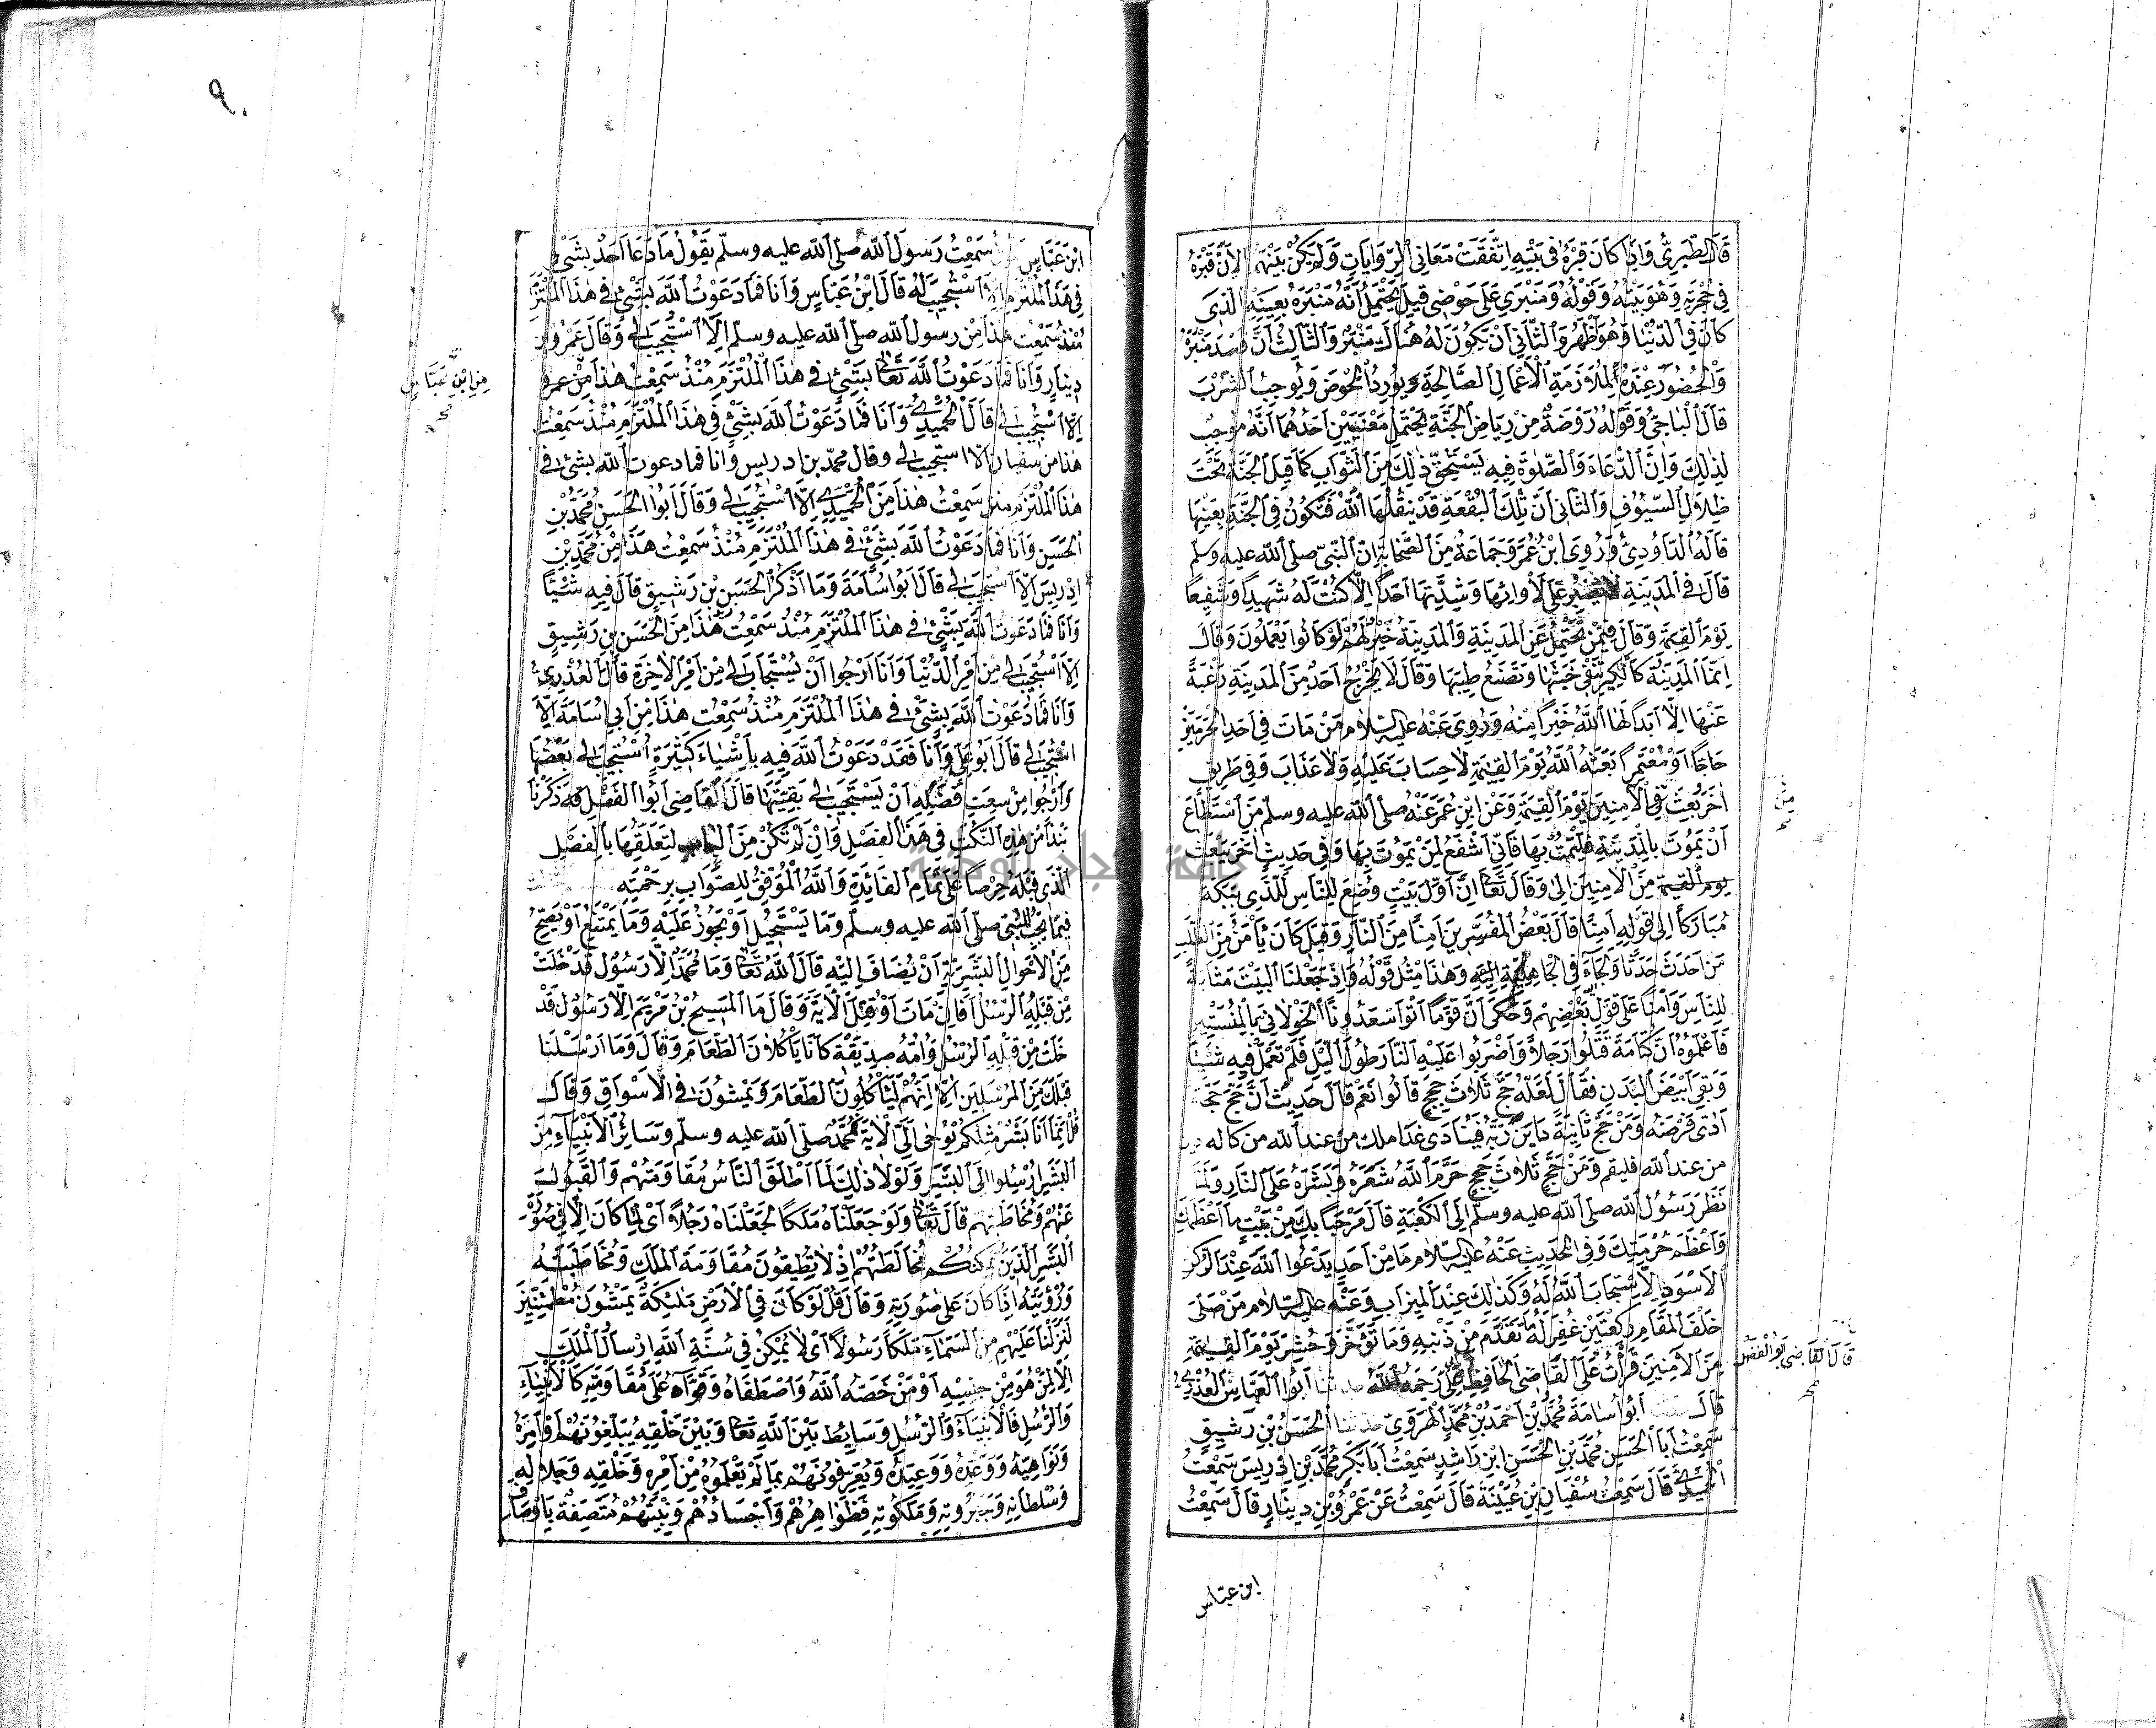 قَالَ الطَّبَرِيُّ وَاِذَا كَانَ قَبْرُهُ فِي بَيْتِهِ اِتَّفَقَتْ مَعَانِي الرِّوَايَاتِ وَلَمْ يَكُنْ بَيْنَهَا لِاَنَّ قَبْرَهُ
فِي حُجْرَتِهِ وَهُوَ بَيْتُهُ وَقَوْلُهُ وَمِنْبَرِي عَلَى حَوْضِي قِيلَ يَحْتَمِلُ اَنَّهُ مِنْبَرُهُ بِعَيْنِهِ الَّذِي
كَانَ فِي الدُّنْيَا وَهُوَ اَظْهَرُ وَالثَّانِي اَنْ يَكُونَ لَهُ هُنَاكَ مِنْبَرٌ وَالثَّالِثُ اَنَّ قَصْدَ مِنْبَرِهِ
وَالْحُضُورَ عِنْدَهُ لِمُلَازَمَةِ الْاَعْمَالِ الصَّالِحَةِ يُورِدُ الْحَوْضَ وَيُوجِبُ الشُّرْبَ
قَالَ الْبَاجِيُّ وَقَوْلُهُ رَوْضَةٌ مِنْ رِيَاضِ الْجَنَّةِ يَحْتَمِلُ مَعْنَيَيْنِ اَحَدُهُمَا اَنَّهُ مُوجِبٌ
لِذٰلِكَ وَاِنَّ الدُّعَاءَ وَالصَّلٰوةَ فِيهِ يَسْتَحِقُّ ذٰلِكَ مِنَ الثَّوَابِ كَمَا قِيلَ الْجَنَّةُ تَحْتَ
ظِلَالِ السُّيُوفِ وَالثَّانِي اَنَّ تِلْكَ الْبُقْعَةِ قَدْ يَنْقُلُهَا اللّٰهُ فَتَكُونُ فِي الْجَنَّةِ بِعَيْنِهَا
قَالَهُ الدَّاوُدِيُّ وَرَوٰى ابْنُ عُمَرَ وَجَمَاعَةٌ مِنَ الصَّحَابَةِ اِنَّ النَّبِيَّ صلى الله عليه وسلم
قَالَ فِي الْمَدِينَةِ لَا يَصْبِرُ عَلَى لَأْوَائِهَا وَشِدَّتِهَا اَحَدٌ اِلَّا كُنْتُ لَهُ شَهِيدًا وَشَفِيعًا
يَوْمَ الْقِيٰمَةِ وَقَالَ فِيمَنْ تَحَمَّلَ عَنِ الْمَدِينَةِ وَالْمَدِينَةُ خَيْرٌ لَهُمْ لَوْ كَانُوا يَعْلَمُونَ وَقَالَ
اِنَّمَا الْمَدِينَةُ كَالْكِيرِ تَنْفِي خَبَثَهَا وَتَصْنَعُ طِيبَهَا وَقَالَ لَا يَخْرُجُ اَحَدٌ مِنَ الْمَدِينَةِ رَغْبَةً
عَنْهَا اِلَّا اَبْدَلَهَا اللّٰهُ خَيْرًا مِنْهُ وَرُوِيَ عَنْهُ عليه السلام مَنْ مَاتَ فِي اَحَدِ الْحَرَمَيْنِ
حَاجًّا اَوْ مُعْتَمِرًا بَعَثَهُ اللّٰهُ يَوْمَ الْقِيٰمَةِ لَا حِسَابَ عَلَيْهِ وَلَا عَذَابَ وَفِي طَرِيقٍ
اٰخَرَ بُعِثَ فِي الْاٰمِنِينَ يَوْمَ الْقِيٰمَةِ وَعَنِ ابْنِ عُمَرَ عَنْهُ صلى الله عليه وسلم مَنِ اسْتَطَاعَ
اَنْ يَمُوتَ بِالْمَدِينَةِ فَلْيَمُتْ بِهَا فَاِنِّي اَشْفَعُ لِمَنْ يَمُوتُ بِهَا وَفِي حَدِيثٍ اٰخَرَ يُبْعَثُ
يوم القيٰمة مِنَ الْاٰمِنِينَ وَقَالَ تَعَالٰى اِنَّ اَوَّلَ بَيْتٍ وُضِعَ لِلنَّاسِ لَلَّذِي بِبَكَّةَ
مُبَارَكًا اِلٰى قَوْلِهِ اٰمِنًا قَالَ بَعْضُ الْمُفَسِّرِينَ اٰمِنًا مِنَ النَّارِ وَقِيلَ كَانَ يَأْمَنُ مِنَ الطَّلَبِ
مَنْ اَحْدَثَ حَدَثًا وَلَجَاَ فِي الْجَاهِلِيَّةِ اِلَيْهِ وَهٰذَا مِثْلُ قَوْلِهِ وَاِذْ جَعَلْنَا الْبَيْتَ مَثَابَةً
لِلنَّاسِ وَاَمْنًا عَلَى قَوْلِ بَعْضِهِمْ وَحُكِيَ اَنَّ قَوْمًا اَتَوْا سَعْدُونًا الْخَوْلَانِيَّ بِالْمُنَسْتِيرِ
فَاَعْلَمُوهُ اَنَّ كُتَامَةَ قَتَلُوا رَجُلًا وَاَضْرَمُوا عَلَيْهِ النَّارَ طُولَ اللَّيْلِ فَلَمْ تَعْمَلْ فِيهِ شَيْئًا
وَبَقِيَ اَبْيَضَ الْبَدَنِ فَقَالَ لَعَلَّهُ حَجَّ ثَلَاثَ حِجَجٍ قَالُوا نَعَمْ قَالَ حَدِيثَ اَنَّ مَنْ حَجَّ حَجَّةً
اَدّٰى فَرْضَهُ وَمَنْ حَجَّ ثَانِيَةً دَايَنَ رَبَّهُ فَيُنَادِي غَدًا ملك من عند الله من كان له
من عند الله فليقم وَمَنْ حَجَّ ثَلَاثَ حِجَجٍ حَرَّمَ اللّٰهُ شَعْرَهُ وَبَشَرَهُ عَلَى النَّارِ وَلَمَّا
نَظَرَ رَسُولُ اللّٰهِ صلى الله عليه وسلم اِلَى الْكَعْبَةِ قَالَ مَرْحَبًا بِكِ مِنْ بَيْتٍ مَا اَعْظَمَكِ
وَاَعْظَمَ حُرْمَتَكِ وَفِي الْحَدِيثِ عَنْهُ عليه السلام مَا مِنْ اَحَدٍ يَدْعُوا اللّٰهَ عِنْدَ الرُّكْنِ
الْاَسْوَدِ اِلَّا اسْتَجَابَ اللّٰهُ لَهُ وَكَذٰلِكَ عِنْدَ الْمِيزَابِ وَعَنْهُ عليه السلام مَنْ صَلّٰى
خَلْفَ الْمَقَامِ رَكْعَتَيْنِ غُفِرَ لَهُ مَا تَقَدَّمَ مِنْ ذَنْبِهِ وَمَا تَأَخَّرَ وَحُشِرَ يَوْمَ الْقِيٰمَةِ
مِنَ الْاٰمِنِينَ قَرَأْتُ عَلَى الْقَاضِي الْحَافِظِ اَبِي عَلِيٍّ رَحِمَهُ اللّٰهُ حدثنا اَبُو الْعَبَّاسِ الْعُذْرِيُّ
قَالَ اَبُو اُسَامَةَ مُحَمَّدُ بْنُ اَحْمَدَ بْنِ مُحَمَّدٍ الْهَرَوِيُّ حدثنا الْحَسَنُ بْنُ رَشِيقٍ
سَمِعْتُ اَبَا الْحَسَنِ مُحَمَّدَ بْنَ الْحَسَنِ ابْنِ رَاشِدٍ سَمِعْتُ اَبَا بَكْرٍ مُحَمَّدَ بْنَ اِدْرِيسَ سَمِعْتُ
الْحُمَيْدِيَّ قَالَ سَمِعْتُ سُفْيَانَ بْنَ عُيَيْنَةَ قَالَ سَمِعْتُ عَنْ عَمْرِو بْنِ دِينَارٍ قَالَ سَمِعْتُ
مِنْ
قَالَ الْقَاضِي اَبُو الْفَضْلِ
صح
ابن عباس
٩٠
ابْنَ عَبَّاسٍ سَمِعْتُ رَسُولَ اللّٰهِ صلى الله عليه وسلم يَقُولُ مَا دَعَا اَحَدٌ بِشَيْءٍ
فِي هٰذَا الْمُلْتَزَمِ اِلَّا اسْتُجِيبَ لَهُ قَالَ ابْنُ عَبَّاسٍ وَاَنَا فَمَا دَعَوْتُ اللّٰهَ بِشَيْءٍ فِي هٰذَا الْمُلْتَزَمِ
مُنْذُ سَمِعْتُ هٰذَا مِنْ رسول الله صلى الله عليه وسلم اِلَّا اسْتُجِيبَ لِي وَقَالَ عَمْرُو بْنُ
دِينَارٍ وَاَنَا فَمَا دَعَوْتُ اللّٰهَ تَعَالٰى بِشَيْءٍ فِي هٰذَا الْمُلْتَزَمِ مُنْذُ سَمِعْتُ هٰذَا
اِلَّا اسْتُجِيبَ لِي قَالَ الْحُمَيْدِيُّ وَاَنَا فَمَا دَعَوْتُ اللّٰهَ بِشَيْءٍ فِي هٰذَا الْمُلْتَزَمِ مُنْذُ سَمِعْتُ
هٰذا من سفيان الا استجيب لي وقال محمد بن ادريس وانا فما دعوت الله بشئ في
هٰذَا الْمُلْتَزَمِ منذ سَمِعْتُ هٰذَا مِنَ الْحُمَيْدِيِّ اِلَّا اسْتُجِيبَ لِي وَقَالَ اَبُوا الْحَسَنِ مُحَمَّدُ بْنُ
الْحَسَنِ وَاَنَا فَمَا دَعَوْتُ اللّٰهَ بِشَيْءٍ فِي هٰذَا الْمُلْتَزَمِ مُنْذُ سَمِعْتُ هٰذَا مِنْ مُحَمَّدِ بْنِ
اِدْرِيسَ اِلَّا اسْتُجِيبَ لِي قَالَ اَبُو اُسَامَةَ وَمَا اَذْكُرُ الْحَسَنَ بْنَ رَشِيقٍ قَالَ فِيهِ شَيْئًا
وَاَنَا فَمَا دَعَوْتُ اللّٰهَ بِشَيْءٍ فِي هٰذَا الْمُلْتَزَمِ مُنْذُ سَمِعْتُ هٰذَا مِنَ الْحَسَنِ بْنِ رَشِيقٍ
اِلَّا اسْتُجِيبَ لِي مِنْ اَمْرِ الدُّنْيَا وَاَنَا اَرْجُوا اَنْ يُسْتَجَابَ لِي مِنْ اَمْرِ الْاٰخِرَةِ قَالَ الْعُذْرِيُّ
وَاَنَا فَمَا دَعَوْتُ اللّٰهَ بِشَيْءٍ فِي هٰذَا الْمُلْتَزَمِ مُنْذُ سَمِعْتُ هٰذَا مِنْ اَبِي اُسَامَةَ اِلَّا
اسْتُجِيبَ لِي قَالَ اَبُو عَلِيٍّ وَاَنَا فَقَدْ دَعَوْتُ اللّٰهَ فِيهِ بِاَشْيَاءَ كَثِيرَةٍ اُسْتُجِيبَ لِي بَعْضُهَا
وَاَرْجُوا مِنْ سِعَتِ فَضْلِهِ اَنْ يَسْتَجِيبَ لِي بَقِيَّتَهَا قَالَ الْقَاضِي اَبُوا الْفَضْلِ قَدْ ذَكَرْنَا
نُبَذًا مِنْ هٰذِهِ النُّكَتِ فِي هٰذَا الْفَصْلِ وَاِنْ لَمْ تَكُنْ مِنَ الْبَابِ لِتَعَلُّقِهَا بِالْفَصْلِ
الَّذِي قَبْلَهُ حِرْصًا عَلَى تَمَامِ الْفَائِدَةِ وَاللّٰهُ الْمُوَفِّقُ لِلصَّوَابِ بِرَحْمَتِهِ
فِيمَا يَجِبُ لِلنَّبِيِّ صلى الله عليه وسلم وَمَا يَسْتَحِيلُ اَوْ يَجُوزُ عَلَيْهِ وَمَا يَمْتَنِعُ اَوْ يَصِحُّ
مِنَ الْاَحْوَالِ الْبَشَرِيَّةِ اَنْ يُضَافَ اِلَيْهِ قَالَ اللّٰهُ تَعَالٰى وَمَا مُحَمَّدٌ اِلَّا رَسُولٌ قَدْ خَلَتْ
مِنْ قَبْلِهِ الرُّسُلُ اَفَاِنْ مَاتَ اَوْ قُتِلَ الْاٰيَةَ وَقَالَ مَا الْمَسِيحُ بْنُ مَرْيَمَ اِلَّا رَسُولٌ قَدْ
خَلَتْ مِنْ قَبْلِهِ الرُّسُلُ وَاُمُّهُ صِدِّيقَةٌ كَانَا يَأْكُلَانِ الطَّعَامَ وَقَالَ وَمَا اَرْسَلْنَا
قَبْلَكَ مِنَ الْمُرْسَلِينَ اِلَّا اِنَّهُمْ لَيَأْكُلُونَ الطَّعَامَ وَيَمْشُونَ فِي الْاَسْوَاقِ وَقَالَ
قُلْ اِنَّمَا اَنَا بَشَرٌ مِثْلُكُمْ يُوحٰى اِلَيَّ الْاٰيَةَ فَمُحَمَّدٌ صلى الله عليه وسلم وَسَائِرُ الْاَنْبِيَاءِ مِنَ
الْبَشَرِ اُرْسِلُوا اِلَى الْبَشَرِ وَلَوْلَا ذٰلِكَ لَمَا اَطَاقَ النَّاسُ مُقَاوَمَتَهُمْ وَالْقَبُولَ
عَنْهُمْ وَمُخَاطَبَتَهُمْ قَالَ تَعَالٰى وَلَوْ جَعَلْنَاهُ مَلَكًا لَجَعَلْنَاهُ رَجُلًا اَيْ لَمَا كَانَ اِلَّا فِي صُورَةِ
الْبَشَرِ الَّذِينَ يُمْكِنُكُمْ مُخَالَطَتُهُمْ اِذْ لَا تُطِيقُونَ مُقَاوَمَةَ الْمَلَكِ وَمُخَاطَبَتَهُ
وَرُؤْيَتَهُ اِذَا كَانَ عَلَى صُورَتِهِ وَقَالَ قُلْ لَوْ كَانَ فِي الْاَرْضِ مَلٰئِكَةٌ يَمْشُونَ مُطْمَئِنِّينَ
لَنَزَّلْنَا عَلَيْهِمْ مِنَ السَّمَاءِ مَلَكًا رَسُولًا اَيْ لَا يُمْكِنُ فِي سُنَّةِ اللّٰهِ اِرْسَالُ الْمَلَكِ
اِلَّا لِمَنْ هُوَ مِنْ جِنْسِهِ اَوْ مَنْ خَصَّهُ اللّٰهُ وَاصْطَفَاهُ وَقَوَّاهُ عَلَى مُقَاوَمَتِهِ كَالْاَنْبِيَاءِ
وَالرُّسُلِ فَالْاَنْبِيَاءُ وَالرُّسُلُ وَسَائِطُ بَيْنَ اللّٰهِ تَعَالٰى وَبَيْنَ خَلْقِهِ يُبَلِّغُونَهُمْ اَوَامِرَهُ
وَنَوَاهِيَهُ وَوَعْدَهُ وَوَعِيدَهُ وَيُعَرِّفُونَهُمْ بِمَا لَمْ يَعْلَمُوهُ مِنْ اَمْرِهِ وَخَلْقِهِ وَجَلَالِهِ
وَسُلْطَانِهِ وَجَبَرُوتِهِ وَمَلَكُوتِهِ فَظَوَاهِرُهُمْ وَاَجْسَادُهُمْ وَبِنْيَتُهُمْ مُتَّصِفَةٌ بِاَوْصَافِ
مِنِ ابْنِ عَبَّاسٍ
صح
جامعة النجاح الوطنية